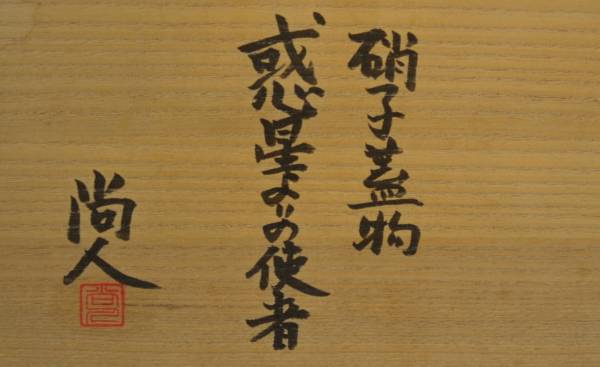 硝子蓋物
惑星よりの使者
尚人